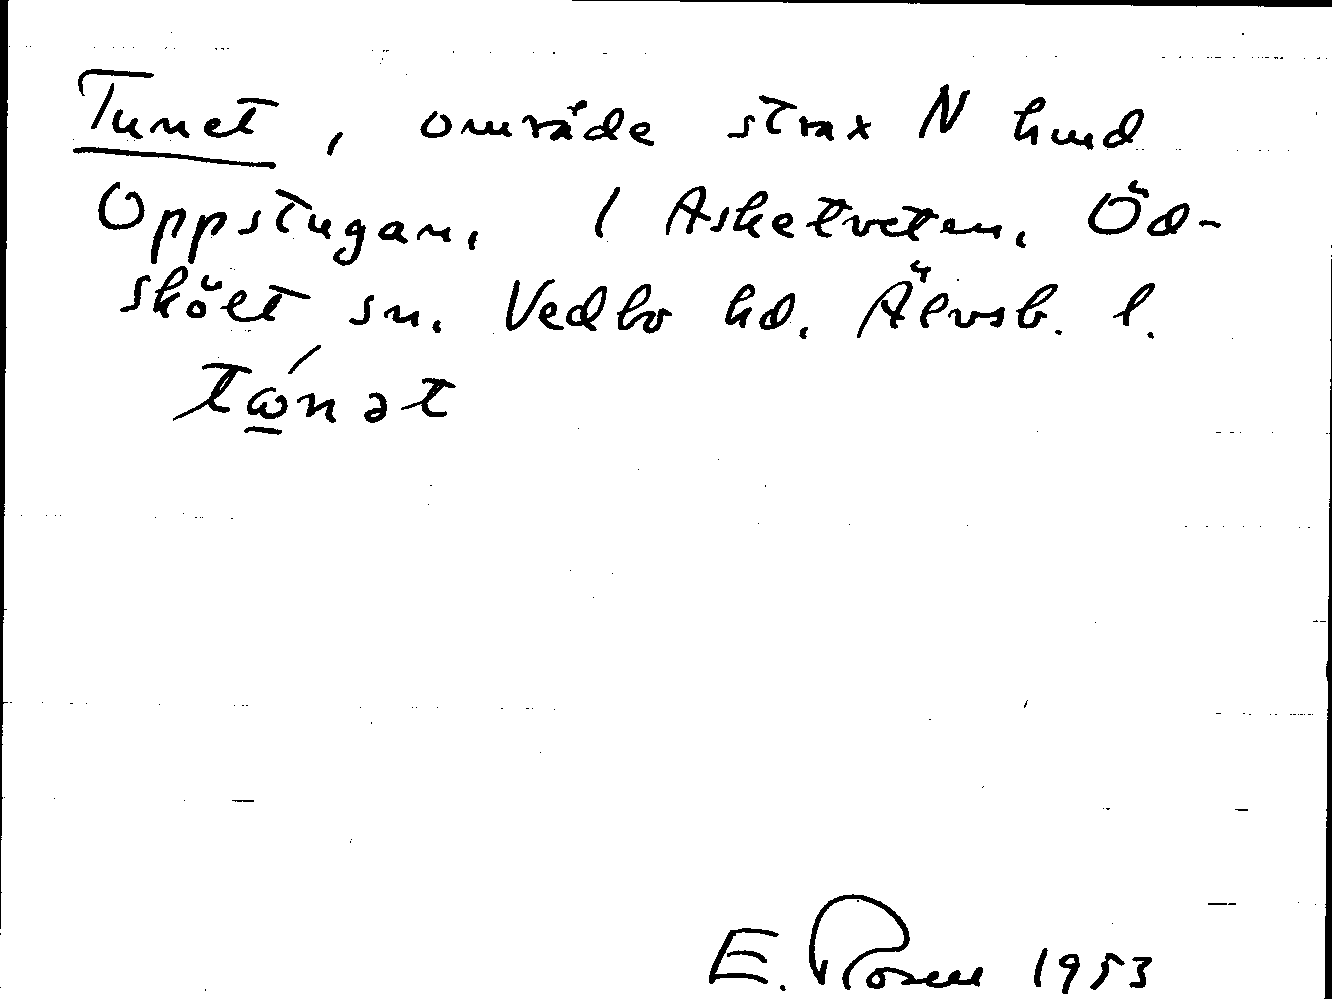 Tunet, område strax N hmd
Oppstugan, 1 Asketveten, Öd-
skölt sn. Vedbo hd. Älvsb. l.
tώ̲nət
E. Rosen 1953